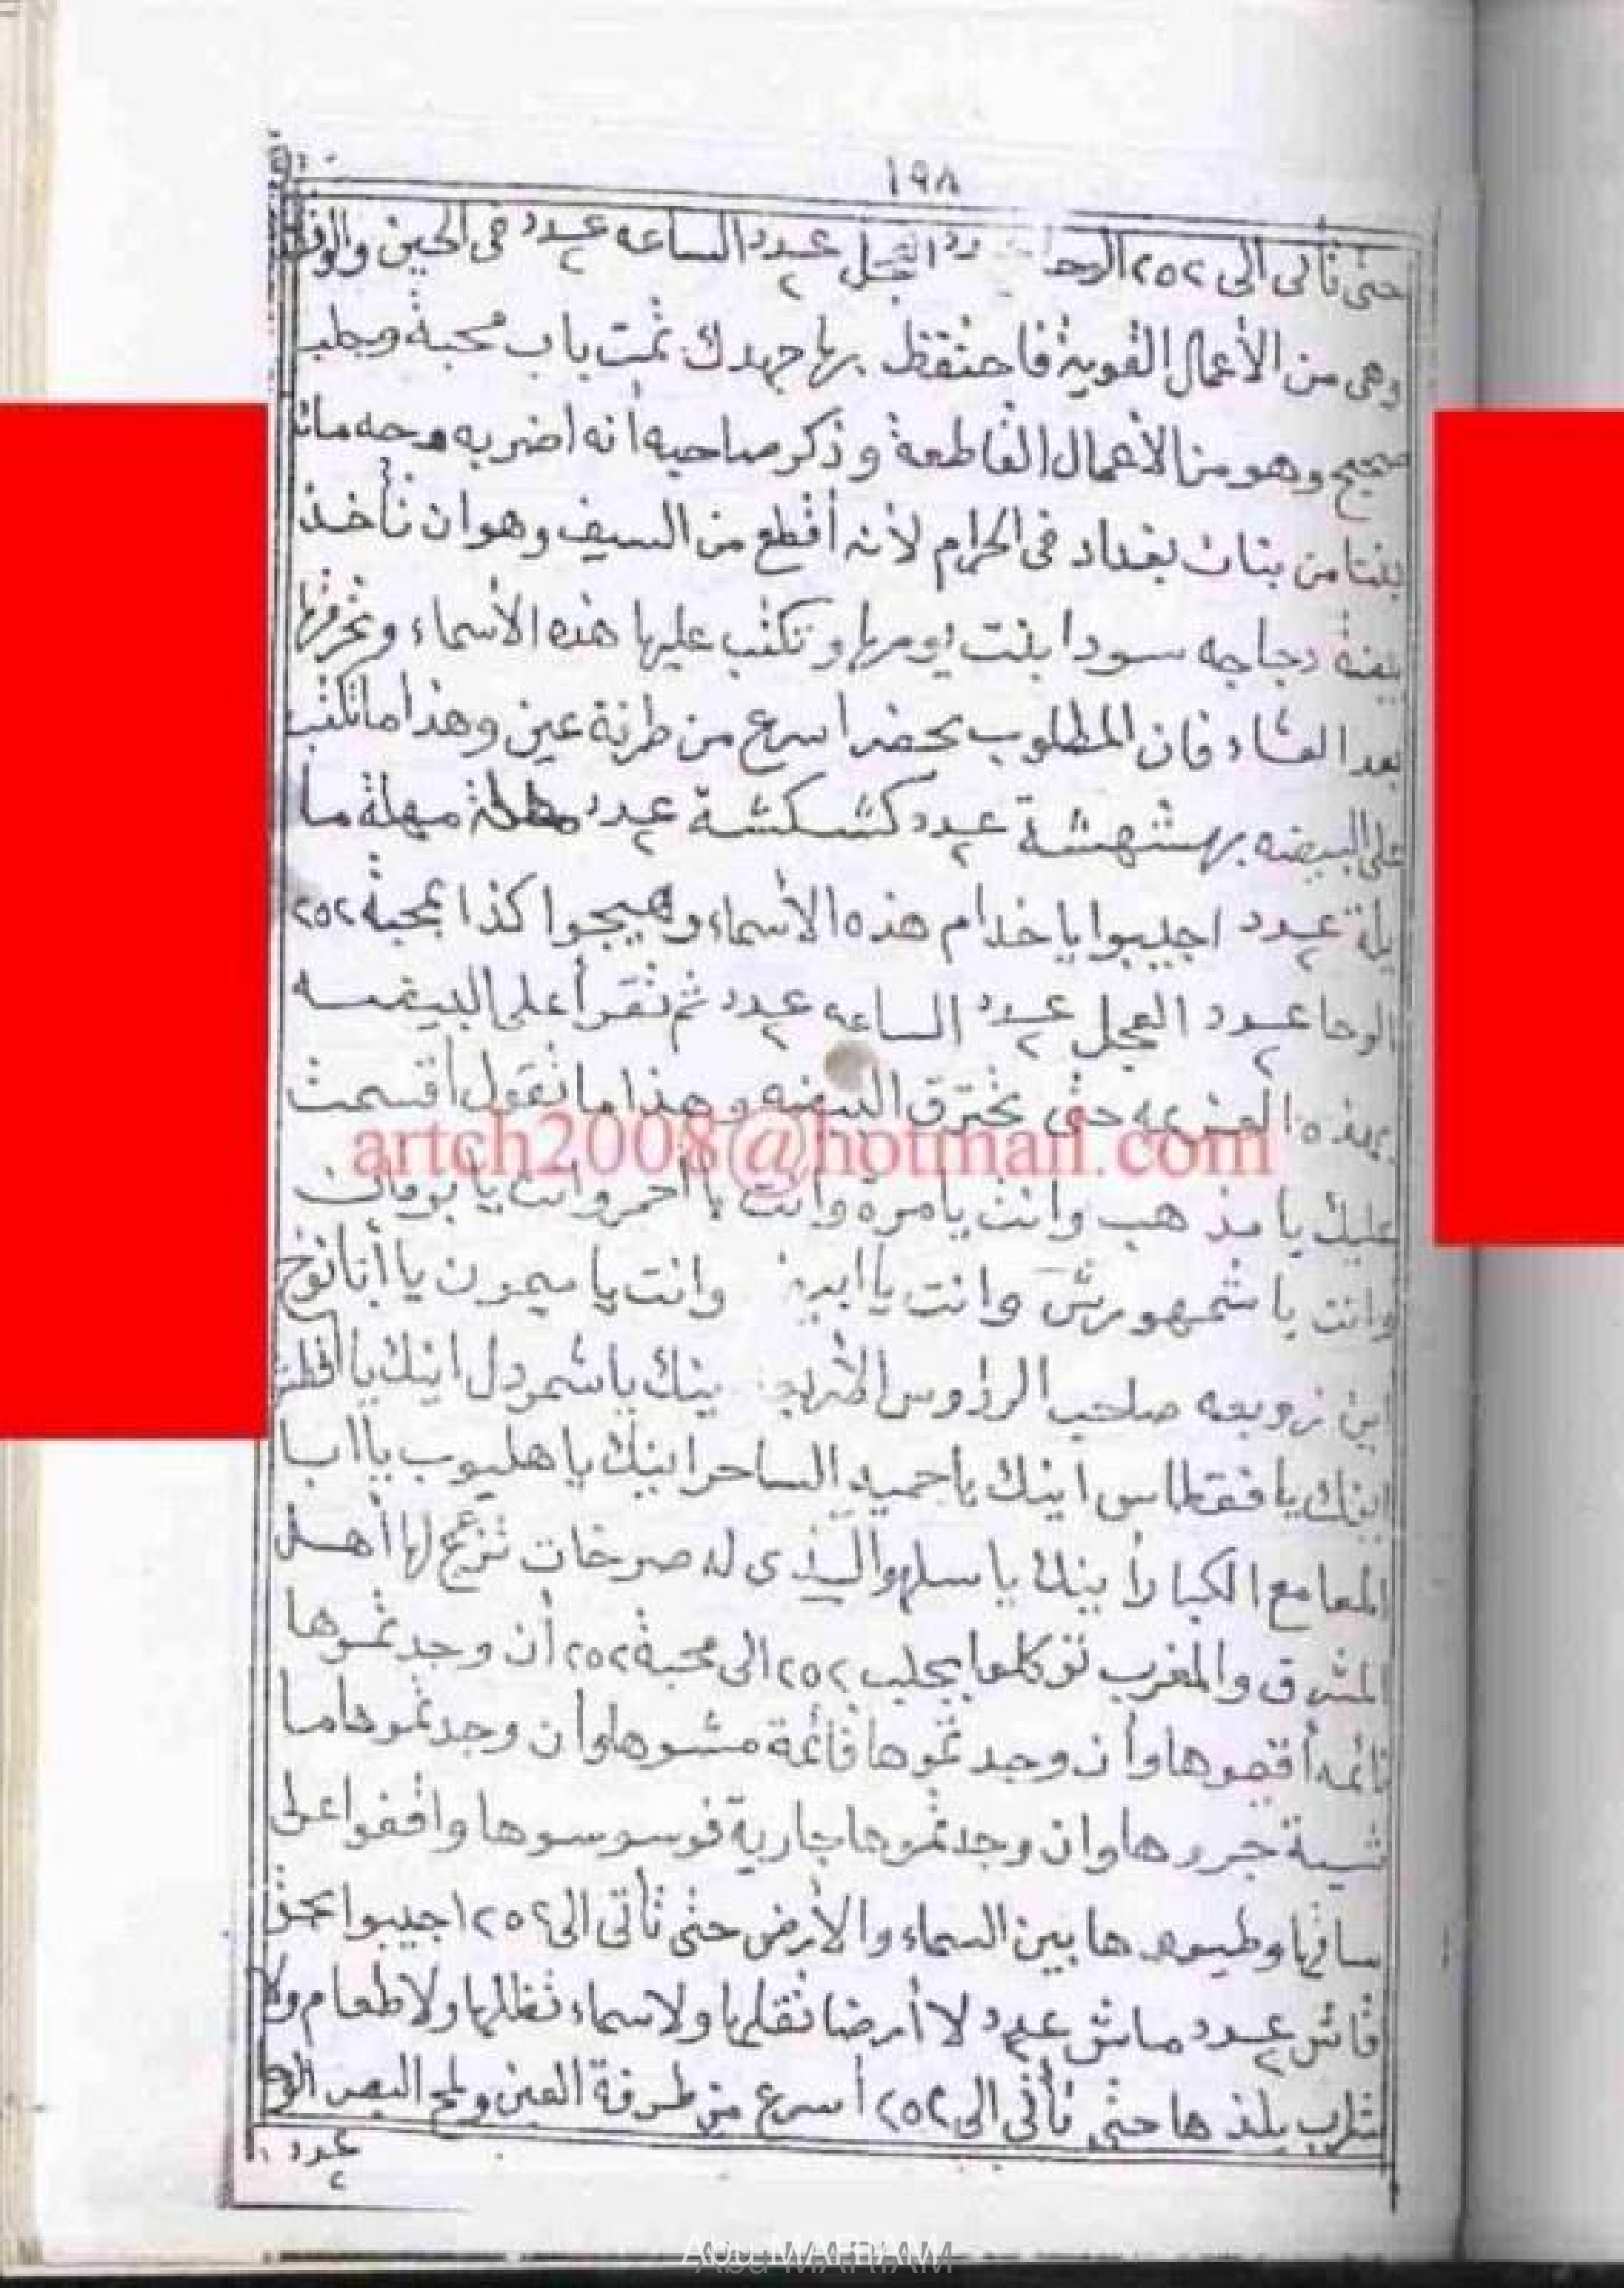 ١٩٨
حتى تأتى الى ٢٥٢ الوحا العجل عدد ٢ الساعه عدد ٢ فى الحين والوقت
وهى من الأعمال القوية فاحتفظ بها جهدك تمت باب محبة وجلب
صحيح وهو من الأعمال القاطعة وذكر صاحبه أنه اضر به وحه مائة
بنتا من بنات بغداد فى الحرام لأنه أقطع من السيف وهو ان تأخذ
بيضة دجاجه سودا بنت يومها وتكتب عليها هذه الأسماء وتحرقها
بعد العشاء فان المطلوب يحضر اسرع من طرفة عين وهذا ما تكتب
على البيضه بهشتهشة عدد ٢ كشكشة عدد ٢ مهلة ما
يلة عدد ٢ اجيبوا يا خدام هذه الأسماء وهيجوا كذا بمحبة ٢٥٢
الوحا عدد ٢ العجل عدد ٢ الساعه عدد ٢ ثم تقرأ على البيضه
بهذه العزيمه حتى تحترق البيضه وهذا ما تقول أقسمت
artch2008@hotmail.com
عليك يا مذهب وانت يا مرة وانت يا أحمر وانت يا بوقان
وانت يا شمهورش وانت يا ابيض وانت يا ميمون يا أبا نوخ
اين زوبعه صاحب الرؤوس الأربع اينك يا شمردل اينك يا اقطش
اينك يا فقطاس اينك يا حميد الساحر اينك يا هليوب يا ابا
المعامع الكبار أينك يا سلهو الذى له صرخات تزعج لها أهل
المشرق والمغرب توكلوا بجلب ٢٥٢ الى محبة ٢٥٢ أن وجدتموها
نائمه أقضوها وأن وجدتموها قائمة مشوها وان وجدتموها ما
شية جرروها وان وجدتموها جارية فوسوسوها واقفوا على
ساقها وطيروها بين السماء والأرض حتى تأتى الى ٢٥٢ اجيبوا بحق
قانش عدد ٢ مانش عدد ٢ لا أرضا تقلها ولا سماء تظلها ولا طعام ولا
شراب يلذها حتى تأتى الى ٢٥٢ أسرع من طرفة العين ولمح البصر الوحا
عدد ٢
Abu MARIAM